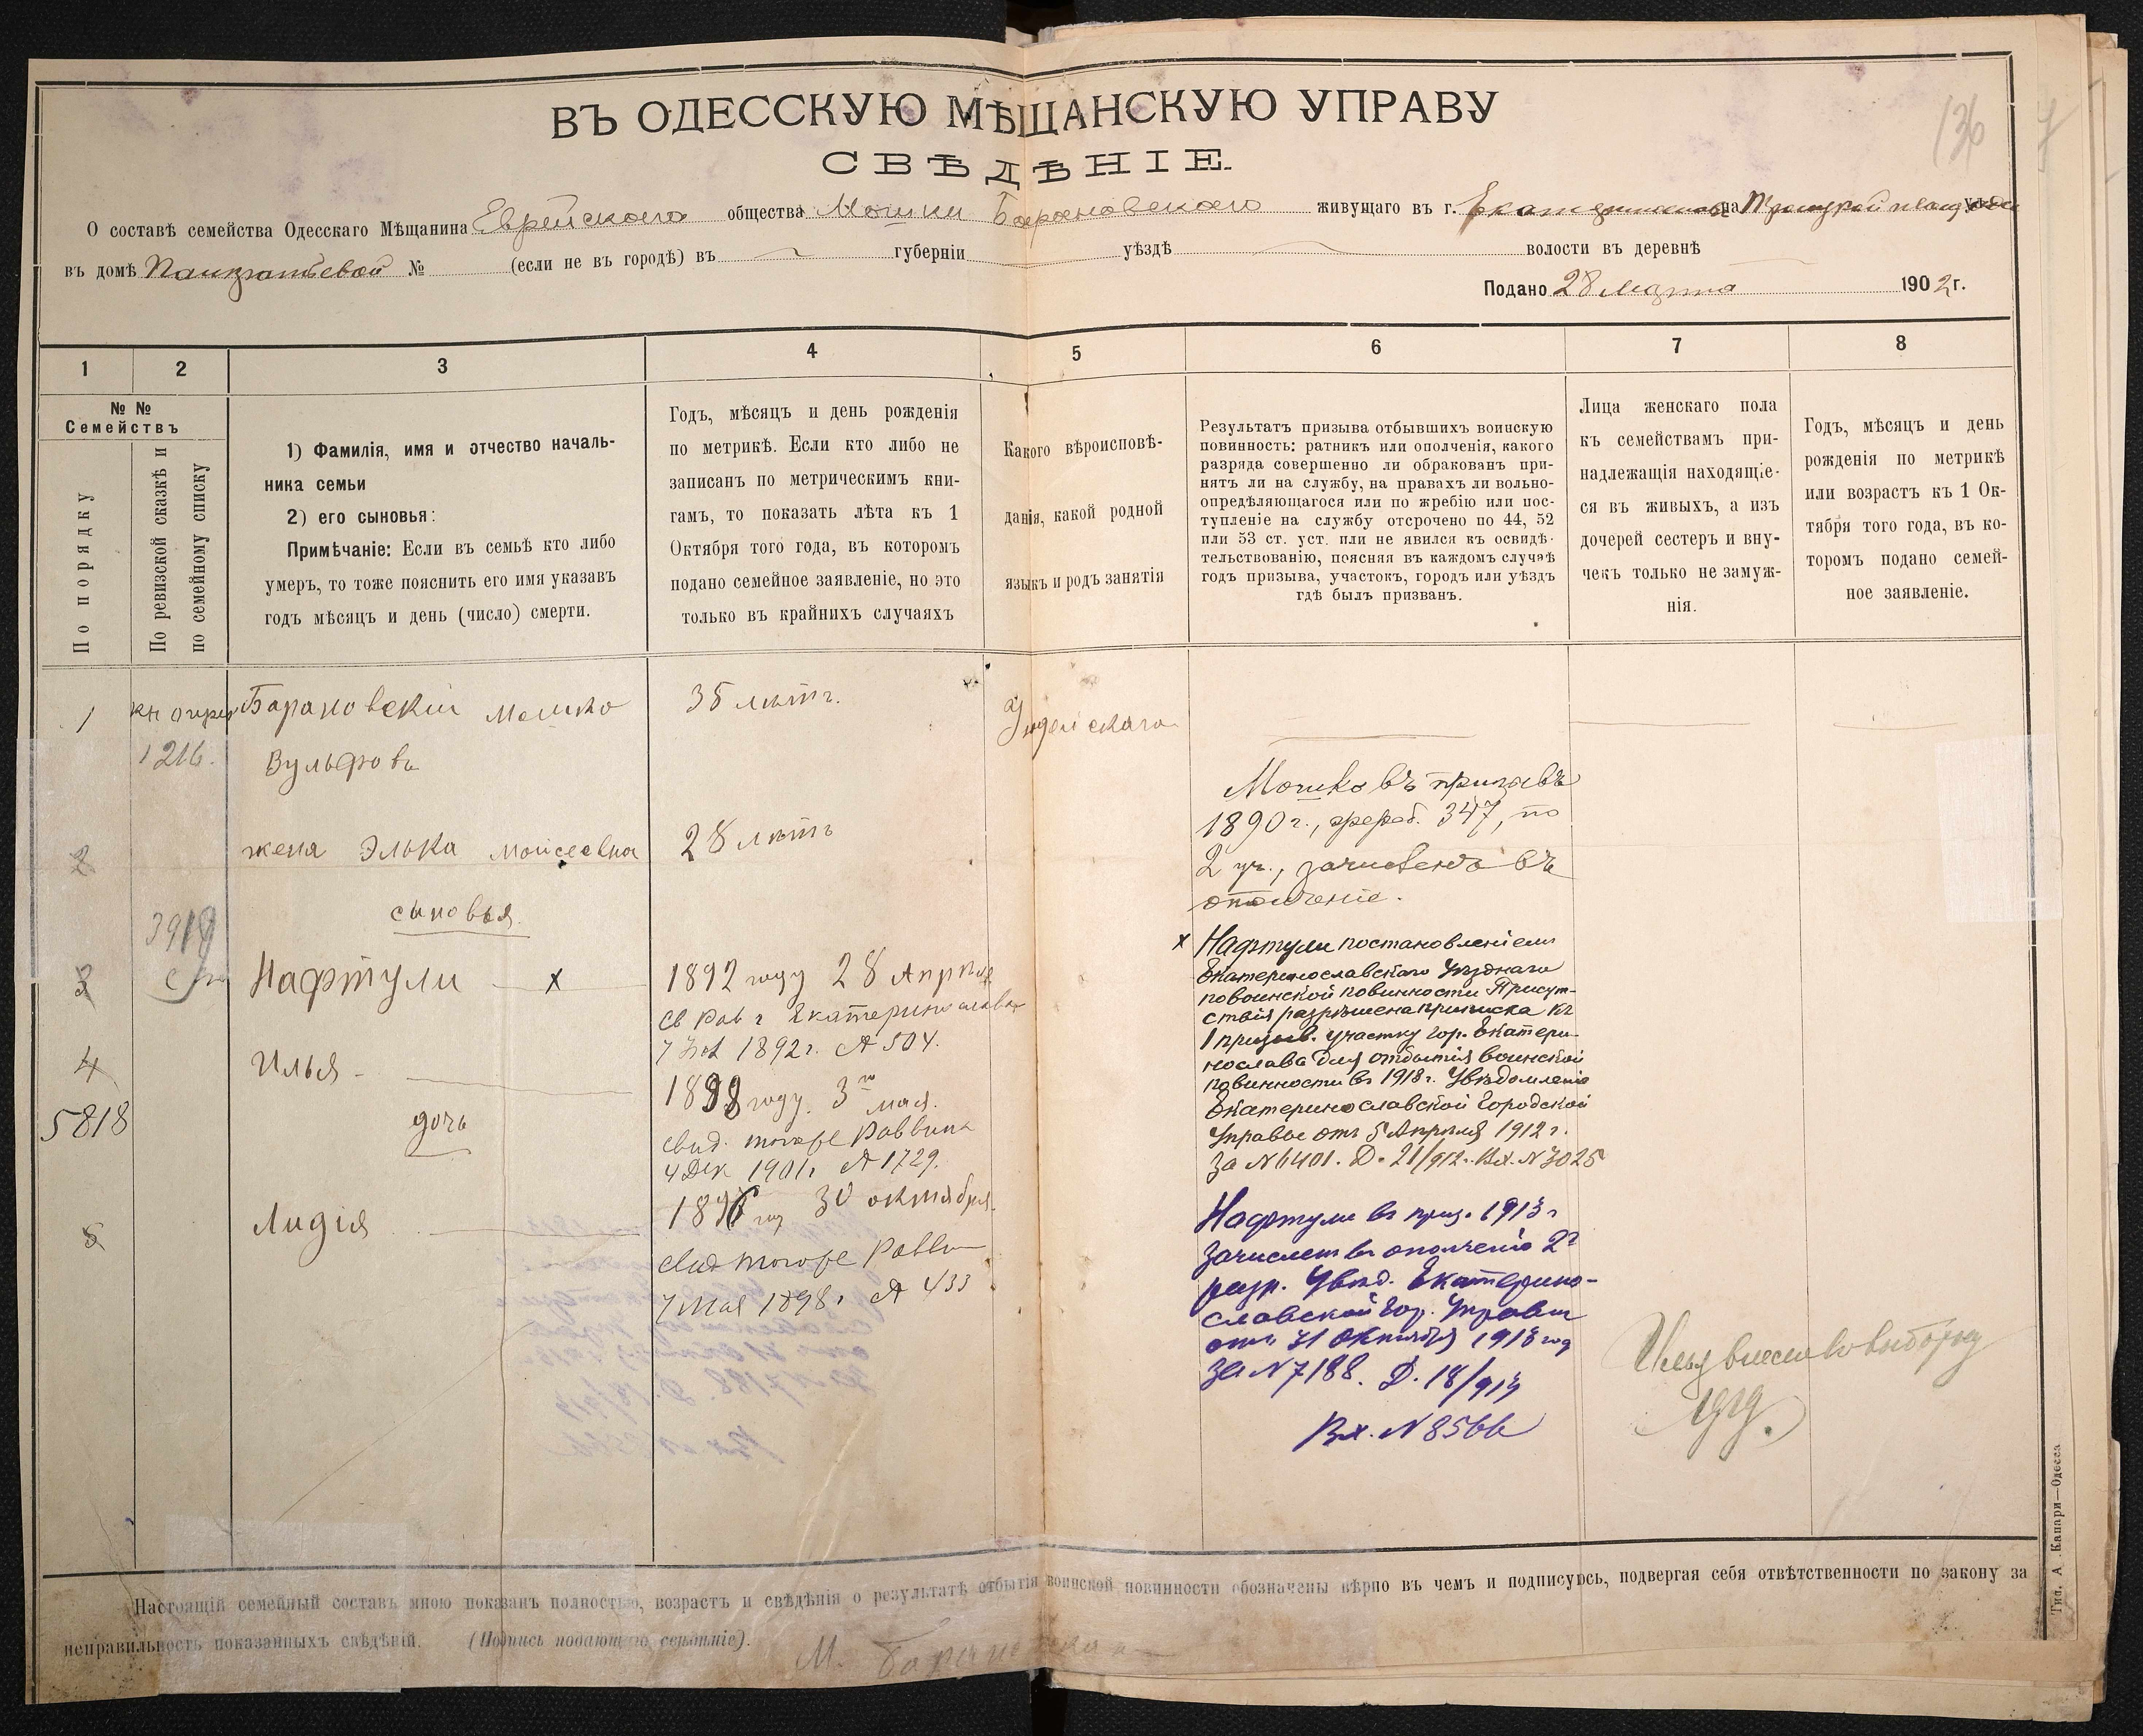 136
ВЪ ОДЕССКУЮ МѢЩАНСКУЮ УПРАВУ
СВѢДѢНІЕ.
О составѣ семейства Одесскаго Мѣщанина Еврейскаго общества Мошки Барановскаго живущаго въ г. на
въ домѣ Панкратьевой № (если не въ городѣ) въ губерніи уѣздѣ волости въ деревнѣ
Подано 28 Марта 1902 г.
1 2 3 4 5 6 7 8
№ №
Семействъ
По порядку
По ревизской сказкѣ и
по семейному списку
1) Фамилія, имя и отчество началь-
ника семьи
2) его сыновья:
Примѣчаніе: Если въ семьѣ кто либо
умеръ, то тоже пояснить его имя указавъ
годъ мѣсяцъ и день (число) смерти.
Годъ, мѣсяцъ и день рожденія
по метрикѣ. Если кто либо не
записанъ по метрическимъ кни-
гамъ, то показать лѣта къ 1
Октября того года, въ которомъ
подано семейное заявленіе, но это
только въ крайнихъ случаяхъ
Какого вѣроисповѣ-
данія, какой родной
языкъ и родъ занятія
Результатъ призыва отбывшихъ воинскую
повинность: ратникъ или ополченія, какого
разряда совершенно ли обракованъ при-
нятъ ли на службу, на правахъ ли вольно-
опредѣляющагося или по жребію или пос-
тупленіе на службу отсрочено по 44, 52
или 53 ст. уст. или не явился къ освидѣ-
тельствованію, поясняя въ каждомъ случаѣ
годъ призыва, участокъ, городъ или уѣздъ
гдѣ былъ призванъ.
Лица женскаго пола
къ семействамъ при-
надлежащія находящіе-
ся въ живыхъ, а изъ
дочерей сестеръ и вну-
чекъ только не замуж-
нія.
Годъ, мѣсяцъ и день
рожденія по метрикѣ
или возрастъ къ 1 Ок-
тября того года, въ ко-
торомъ подано семей-
ное заявленіе.
1
1216.
Барановскій Мошко
Вульфовъ
35 лѣтъ.
Іудейскаго
2
жена Элька Моисеевна
28 лѣтъ
сыновья
3919
3
Нафтули х
1892 году 28 Апрѣля
св Рав г Екатеринослава
1892г. № 504.
4
Илья
1899 году. 3го мая.
свид. того же Раввина
4 Дек 1901г № 1729.
5818
дочь
5
Лидія
1896 год 30 октября.
свид того же Раввин
7 Мая 1898г № 433
Мошко въ призывъ
1890 г., жереб. 347, по
2 уч., зачисленъ въ
ополченіе.
х Нафтули постановленіемъ
Екатеринославскаго Уѣзднаго
по воинской повинности Присут-
ствія разрѣшена приписка къ
1 призыв. участку гор. Екатери-
нослава для отбытія воинской
повинности въ 1913г. Увѣдомленіе
Екатеринославской Городской
Управы отъ 5 Апрѣля 1912 г.
за № 6401. Д. 21/912. Вх. № 3025
Нафтули въ приз. 1913 г
зачислен въ ополченіе 2го
разр. Увѣд. Екатерино-
славской Гор. Управы
отъ 31 Октября 1913 год
За № 7188. Д. 18/913
Вх. № 8566
Настоящій семейный составъ мною показанъ полностью, возрастъ и свѣдѣнія о результатѣ отбытія воинской повинности обозначены вѣрно въ чемъ и подписуюсь, подвергая себя отвѣтственности по закону за
неправильность показанныхъ свѣдѣній. (Подпись подающаго свѣдѣніе).
Тип. А. Капари—Одесса